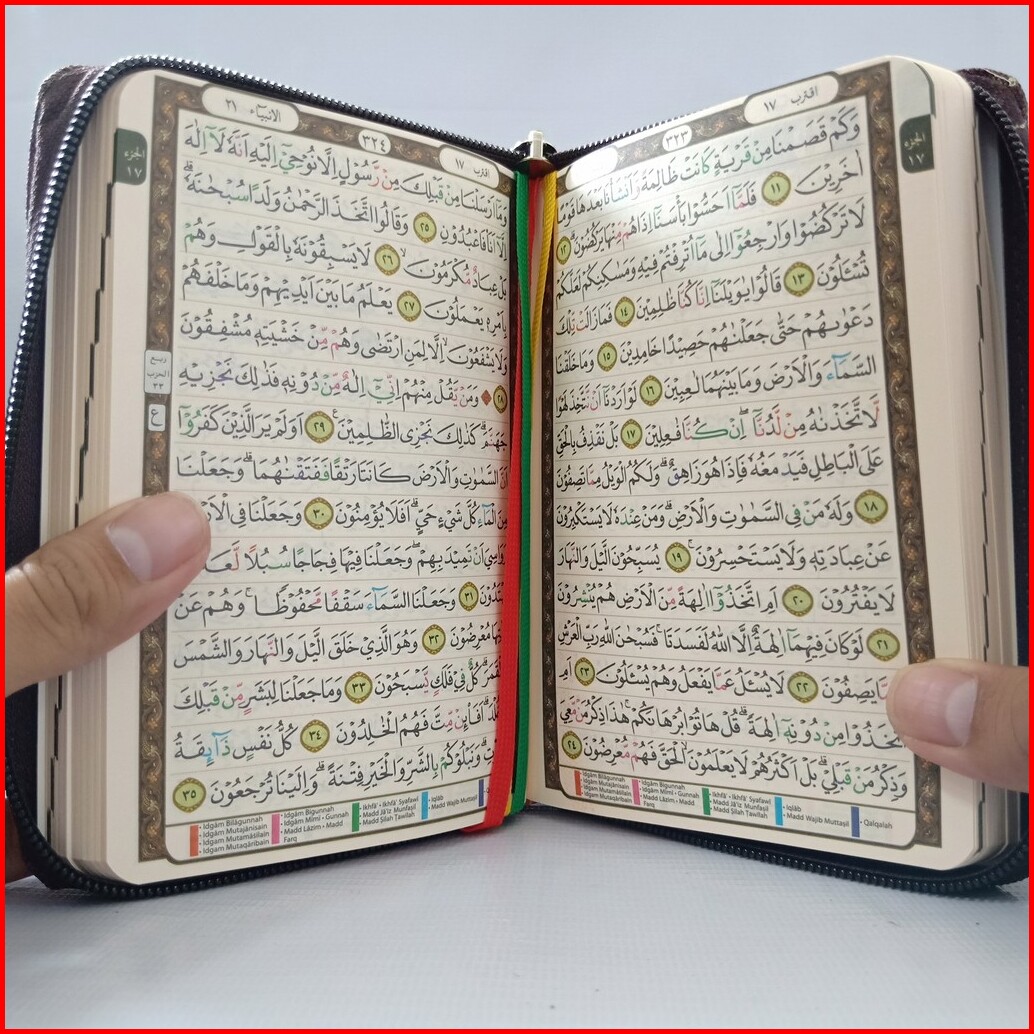 اقترب ١٧
٣٢٣
الجزء
١٧
وَكَمْ قَصَمْنَا مِنْ قَرْيَةٍ كَانَتْ ظَالِمَةً وَّاَنْشَأْنَا بَعْدَهَا قَوْمًا
اٰخَرِيْنَ ١١ فَلَمَّآ اَحَسُّوْا بَأْسَنَآ اِذَا هُمْ مِّنْهَا يَرْكُضُوْنَ ١٢
لَا تَرْكُضُوْا وَارْجِعُوْٓا اِلٰى مَآ اُتْرِفْتُمْ فِيْهِ وَمَسٰكِنِكُمْ لَعَلَّكُمْ
تُسْـَٔلُوْنَ ١٣ قَالُوْا يٰوَيْلَنَآ اِنَّا كُنَّا ظٰلِمِيْنَ ١٤ فَمَا زَالَتْ تِّلْكَ
دَعْوٰىهُمْ حَتّٰى جَعَلْنٰهُمْ حَصِيْدًا خَامِدِيْنَ ١٥ وَمَا خَلَقْنَا
السَّمَاۤءَ وَالْاَرْضَ وَمَا بَيْنَهُمَا لٰعِبِيْنَ ١٦ لَوْ اَرَدْنَآ اَنْ نَّتَّخِذَ لَهْوًا
لَّاتَّخَذْنٰهُ مِنْ لَّدُنَّآ ۖ اِنْ كُنَّا فٰعِلِيْنَ ١٧ بَلْ نَقْذِفُ بِالْحَقِّ
عَلَى الْبَاطِلِ فَيَدْمَغُهٗ فَاِذَا هُوَ زَاهِقٌ ۗ وَلَكُمُ الْوَيْلُ مِمَّا تَصِفُوْنَ
١٨ وَلَهٗ مَنْ فِى السَّمٰوٰتِ وَالْاَرْضِ ۗ وَمَنْ عِنْدَهٗ لَا يَسْتَكْبِرُوْنَ
عَنْ عِبَادَتِهٖ وَلَا يَسْتَحْسِرُوْنَ ۚ ١٩ يُسَبِّحُوْنَ الَّيْلَ وَالنَّهَارَ
لَا يَفْتُرُوْنَ ٢٠ اَمِ اتَّخَذُوْٓا اٰلِهَةً مِّنَ الْاَرْضِ هُمْ يُنْشِرُوْنَ
٢١ لَوْ كَانَ فِيْهِمَآ اٰلِهَةٌ اِلَّا اللّٰهُ لَفَسَدَتَا ۚ فَسُبْحٰنَ اللّٰهِ رَبِّ الْعَرْشِ
عَمَّا يَصِفُوْنَ ٢٢ لَا يُسْـَٔلُ عَمَّا يَفْعَلُ وَهُمْ يُسْـَٔلُوْنَ ٢٣ اَمِ
اتَّخَذُوْا مِنْ دُوْنِهٖٓ اٰلِهَةً ۗ قُلْ هَاتُوْا بُرْهَانَكُمْ ۚ هٰذَا ذِكْرُ مَنْ مَّعِيَ
وَذِكْرُ مَنْ قَبْلِيْ ۗ بَلْ اَكْثَرُهُمْ لَا يَعْلَمُوْنَ ۙ الْحَقَّ فَهُمْ مُّعْرِضُوْنَ ٢٤
• Idgām Bilāgunnah
• Idgām Mutajānisain
• Idgām Mutamāṡilain
• Idgām Mutaqāribain
• Idgām Bigunnah
• Idgām Mīmī • Gunnah
• Madd Lāzim • Madd Farq
• Ikhfā' • Ikhfā' Syafawī
• Madd Jā'iz Munfaṣil
• Madd Ṣilah Ṭawīlah
• Iqlāb
• Madd Wajib Muttaṣil
• Qalqalah
الانبياۤء ٢١
٣٢٤
اقترب ١٧
الجزء
١٧
وَمَآ اَرْسَلْنَا مِنْ قَبْلِكَ مِنْ رَّسُوْلٍ اِلَّا نُوْحِيْٓ اِلَيْهِ اَنَّهٗ لَآ اِلٰهَ
اِلَّآ اَنَا۠ فَاعْبُدُوْنِ ٢٥ وَقَالُوا اتَّخَذَ الرَّحْمٰنُ وَلَدًا سُبْحٰنَهٗ ۗ
بَلْ عِبَادٌ مُّكْرَمُوْنَ ۙ ٢٦ لَا يَسْبِقُوْنَهٗ بِالْقَوْلِ وَهُمْ
بِاَمْرِهٖ يَعْمَلُوْنَ ٢٧ يَعْلَمُ مَا بَيْنَ اَيْدِيْهِمْ وَمَا خَلْفَهُمْ
وَلَا يَشْفَعُوْنَ ۙ اِلَّا لِمَنِ ارْتَضٰى وَهُمْ مِّنْ خَشْيَتِهٖ مُشْفِقُوْنَ
٢٨ ۞ وَمَنْ يَّقُلْ مِنْهُمْ اِنِّيْٓ اِلٰهٌ مِّنْ دُوْنِهٖ فَذٰلِكَ نَجْزِيْهِ
جَهَنَّمَ ۗ كَذٰلِكَ نَجْزِى الظّٰلِمِيْنَ ࣖ ٢٩ اَوَلَمْ يَرَ الَّذِيْنَ كَفَرُوْٓا
اَنَّ السَّمٰوٰتِ وَالْاَرْضَ كَانَتَا رَتْقًا فَفَتَقْنٰهُمَا ۗ وَجَعَلْنَا
مِنَ الْمَاۤءِ كُلَّ شَيْءٍ حَيٍّ ۗ اَفَلَا يُؤْمِنُوْنَ ٣٠ وَجَعَلْنَا فِى الْاَرْ
وَاسِيَ اَنْ تَمِيْدَ بِهِمْ ۖ وَجَعَلْنَا فِيْهَا فِجَاجًا سُبُلًا لَّعَلَّ
تَدُوْنَ ٣١ وَجَعَلْنَا السَّمَاۤءَ سَقْفًا مَّحْفُوْظًا ۚ وَهُمْ عَنْ
اٰيٰتِهَا مُعْرِضُوْنَ ٣٢ وَهُوَ الَّذِيْ خَلَقَ الَّيْلَ وَالنَّهَارَ وَالشَّمْسَ
وَالْقَمَرَ ۗ كُلٌّ فِيْ فَلَكٍ يَّسْبَحُوْنَ ٣٣ وَمَا جَعَلْنَا لِبَشَرٍ مِّنْ قَبْلِكَ
الْخُلْدَ ۗ اَفَا۟ىِٕنْ مِّتَّ فَهُمُ الْخٰلِدُوْنَ ٣٤ كُلُّ نَفْسٍ ذَاۤىِٕقَةُ
الْمَوْتِ ۗ وَنَبْلُوْكُمْ بِالشَّرِّ وَالْخَيْرِ فِتْنَةً ۗ وَاِلَيْنَا تُرْجَعُوْنَ ٣٥
ربع
الحزب
٣٣
ع
• Idgām Bilāgunnah
• Idgām Mutajānisain
• Idgām Mutamāṡilain
• Idgām Mutaqāribain
• Idgām Bigunnah
• Idgām Mīmī • Gunnah
• Madd Lāzim • Madd Farq
• Ikhfā' • Ikhfā' Syafawī
• Madd Jā'iz Munfaṣil
• Madd Ṣilah Ṭawīlah
• Iqlāb
• Madd Wajib Muttaṣil